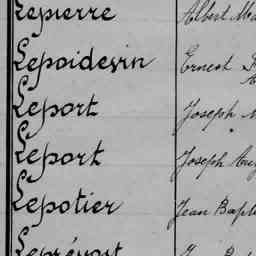 Lepierre Albert
Lepoidevin Ernest
Leport Joseph
Leport Joseph
Lepotier Jean
Leprévost